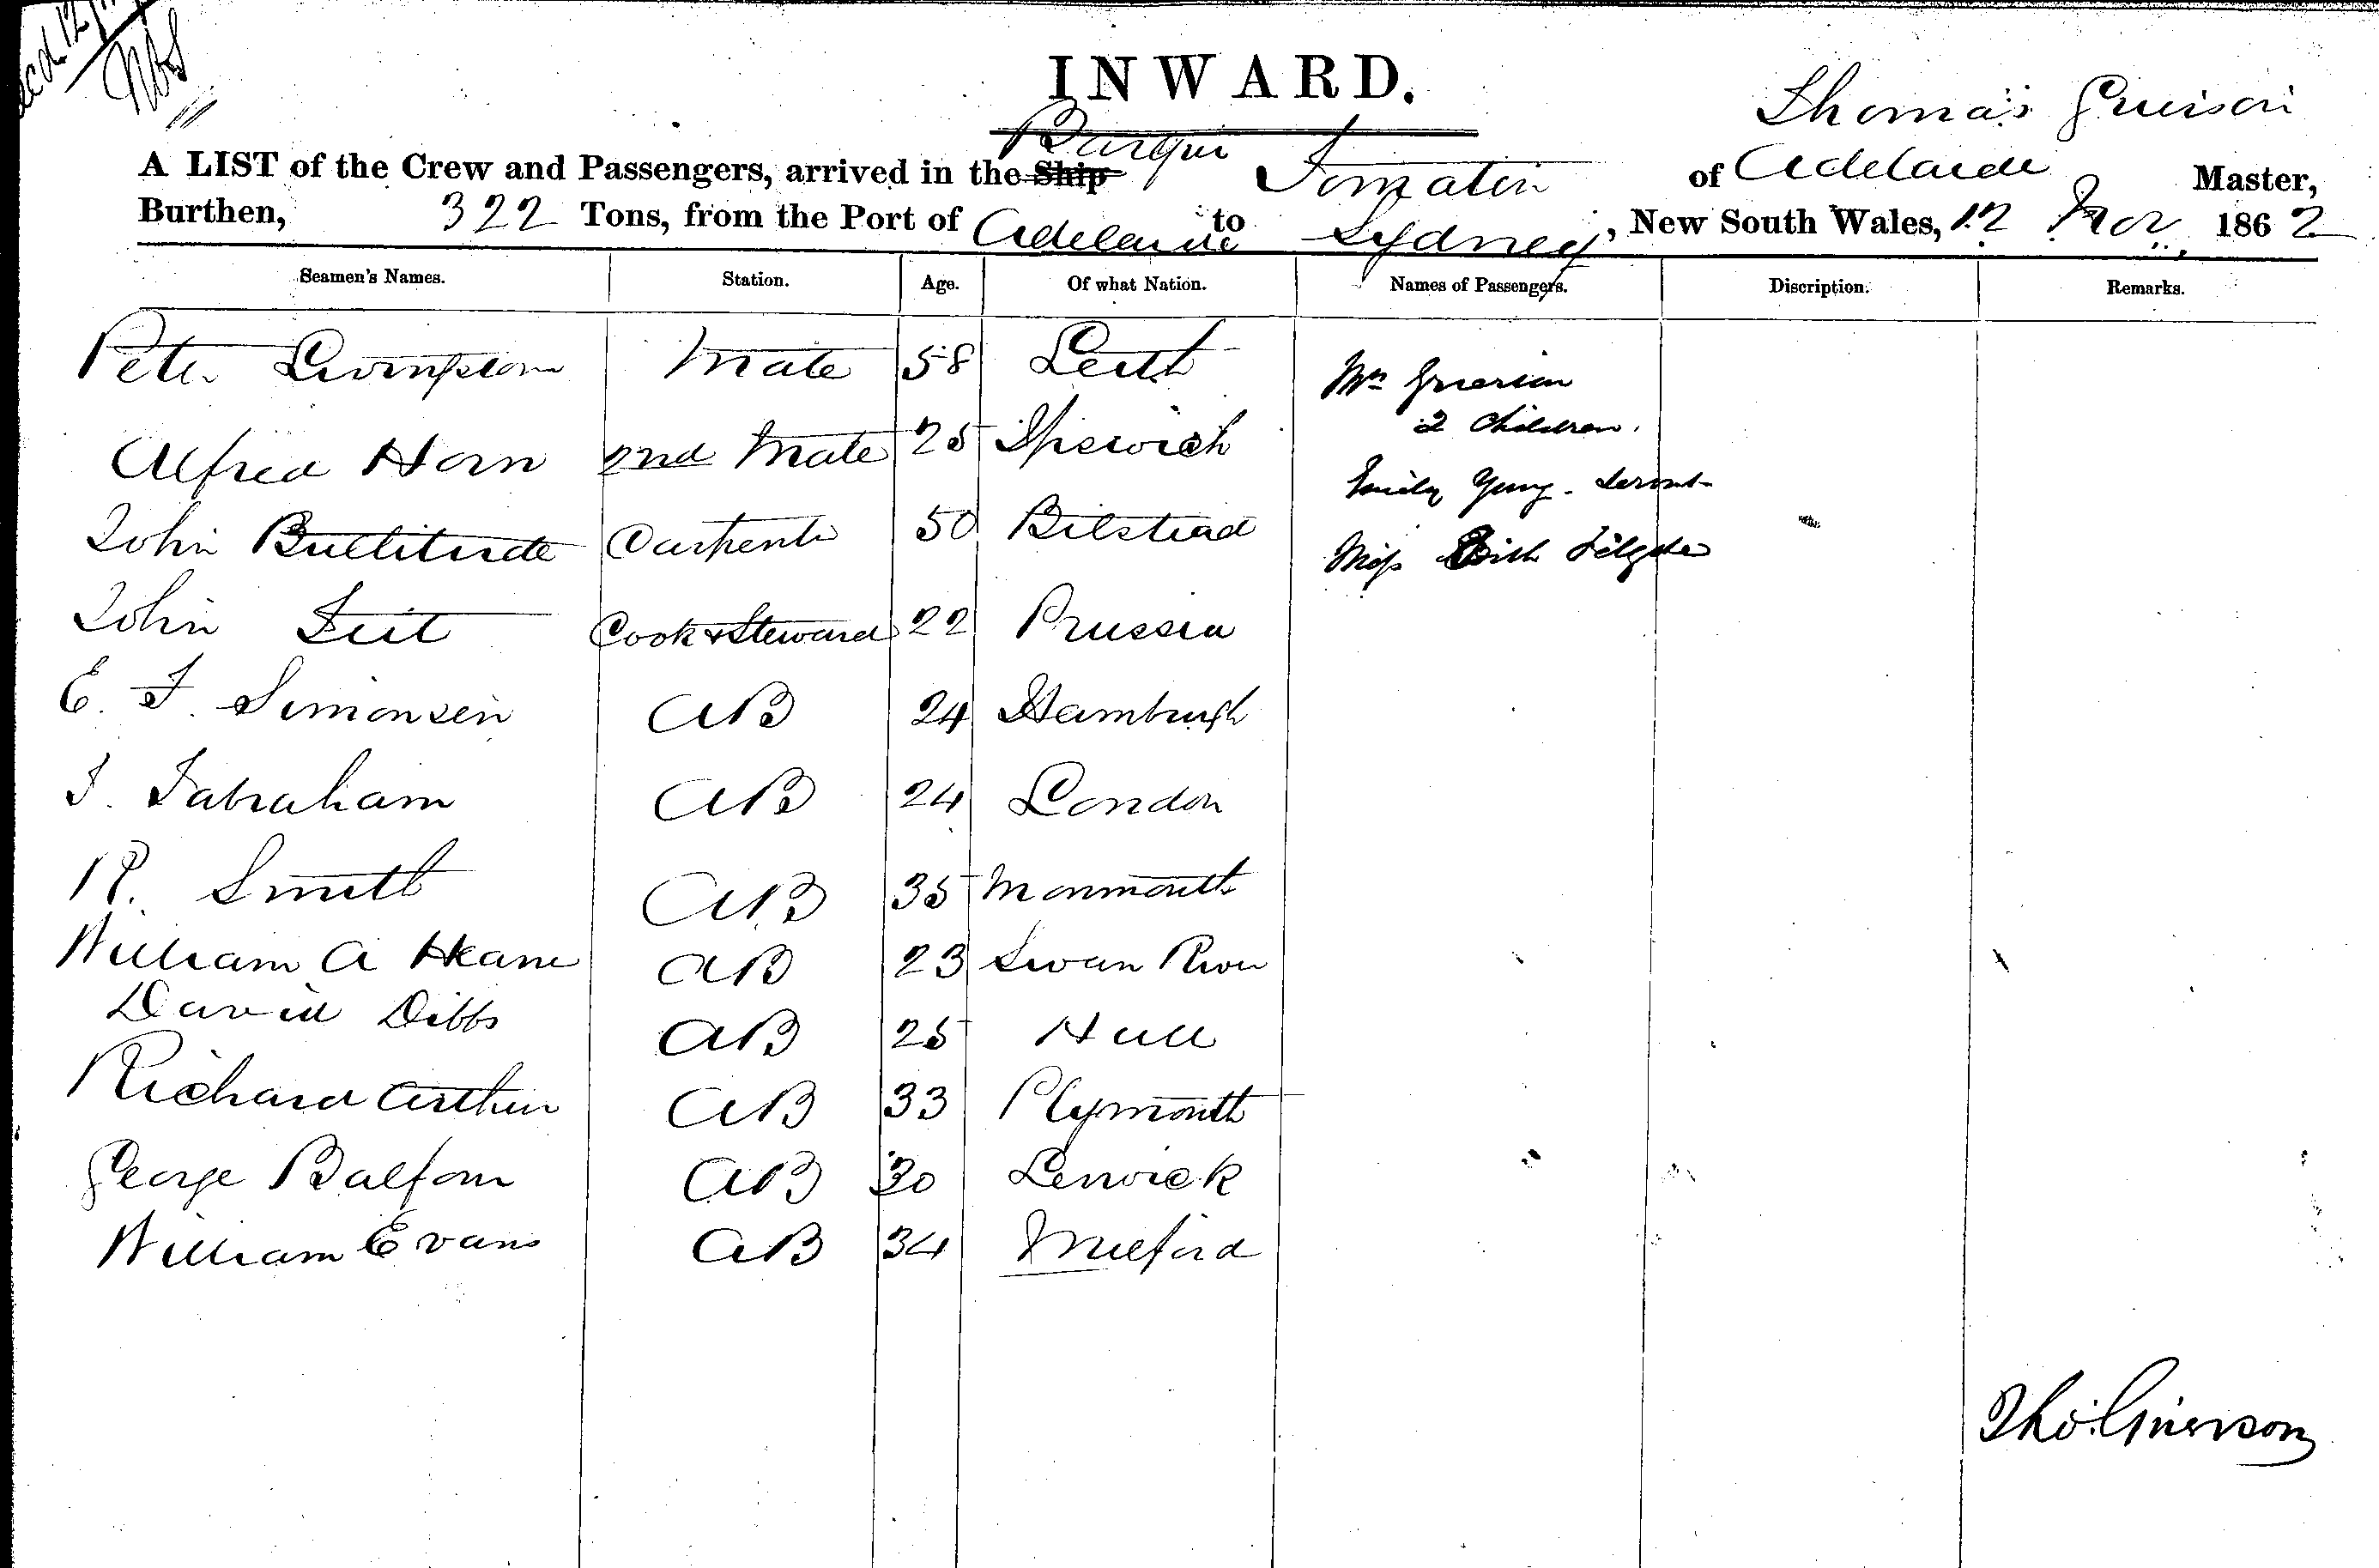 INWARD.
Thomas Grierson
A LIST of the Crew and Passengers, arrived in the Ship Barque Tomatin of Adelaide Master,
Burthen, 322 Tons, from the Port of Adelaide to Sydney, New South Wales, 12 Nov 1862
Seamen's Names. Station. Age. Of what Nation. Names of Passengers. Discription. Remarks.
Peter Livingston Mate 58 Leith Mrs Grierson
2 Children.
Alfred Horn 2nd Mate 25 Ipswich
Emily Yung - Servnt
John Bullitude Carpenter 50 Bilstead
Miss Edith
John Cook & Steward 22 Prussia
E. F. Simonsen AB 24 Hamburgh
J. Jabraham AB 24 London
R. Smith AB 35 Monmouth
William A Heane AB 23 Swan River
David Dibbs AB 25 Hull
Richard Arthur AB 33 Plymouth
George Balfour AB 30 Lerwick
William Evans AB 34 Milford
Tho: Grierson